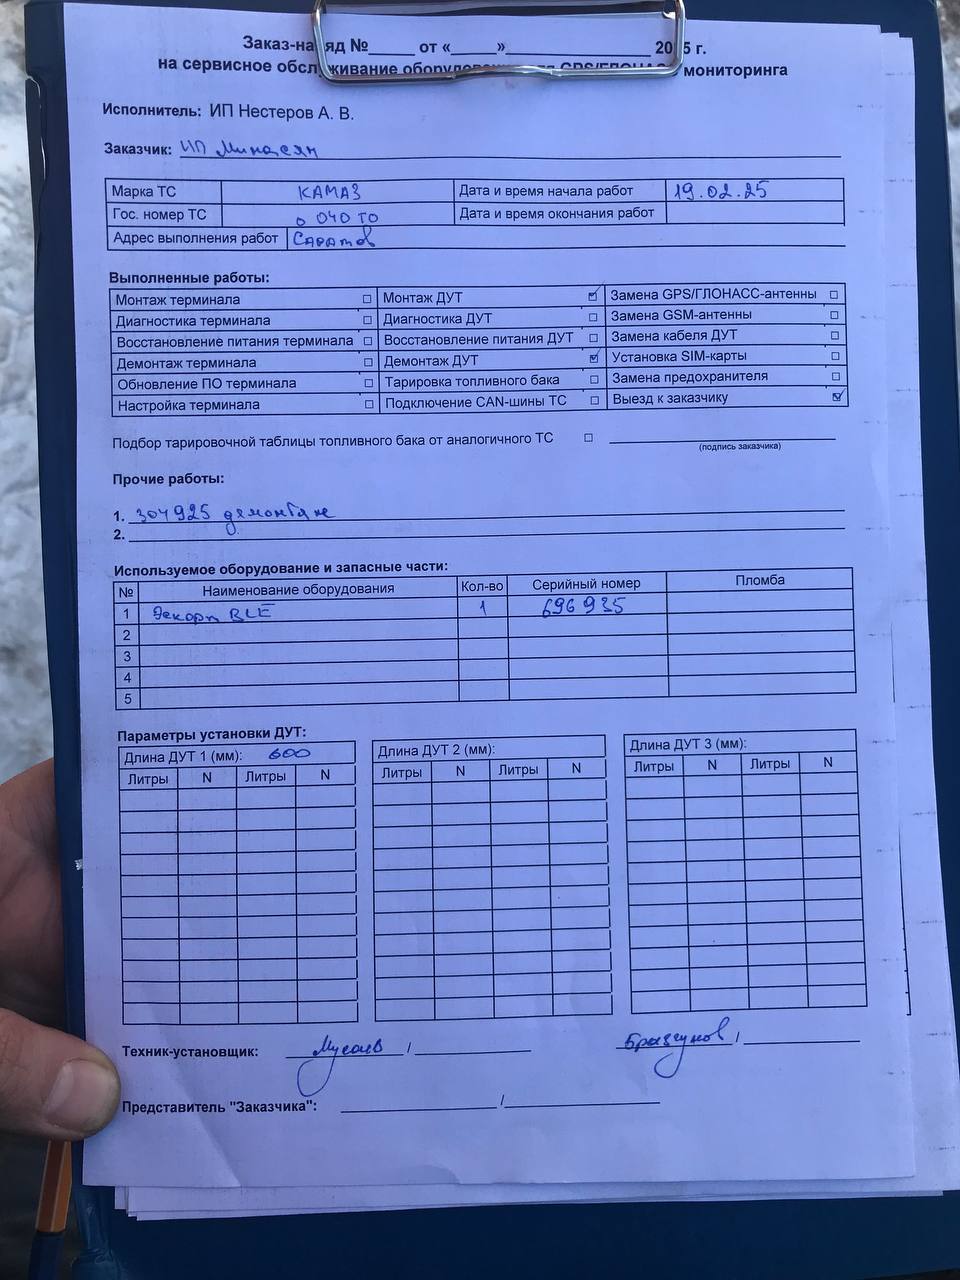 Заказ-наряд №_____ от «_____»________________ 2025 г.
на сервисное обслуживание оборудования для GPS/ГЛОНАСС мониторинга
Исполнитель: ИП Нестеров А. В.
Заказчик: ИП Минасян
Марка ТС КАМАЗ Дата и время начала работ 19.02.25
Гос. номер ТС о 040 ТО Дата и время окончания работ
Адрес выполнения работ Саратов
Выполненные работы:
Монтаж терминала ☐ Монтаж ДУТ ☑ Замена GPS/ГЛОНАСС-антенны ☐
Диагностика терминала ☐ Диагностика ДУТ ☐ Замена GSM-антенны ☐
Восстановление питания терминала ☐ Восстановление питания ДУТ ☐ Замена кабеля ДУТ ☐
Демонтаж терминала ☐ Демонтаж ДУТ ☑ Установка SIM-карты ☐
Обновление ПО терминала ☐ Тарировка топливного бака ☐ Замена предохранителя ☐
Настройка терминала ☐ Подключение CAN-шины ТС ☐ Выезд к заказчику ☑
Подбор тарировочной таблицы топливного бака от аналогичного ТС ☐
(подпись заказчика)
Прочие работы:
1. 304925 демонтаж
2.
Используемое оборудование и запасные части:
№ Наименование оборудования Кол-во Серийный номер Пломба
1 Эскорт BLE 1 696935
2
3
4
5
Параметры установки ДУТ:
Длина ДУТ 1 (мм): 600 Длина ДУТ 2 (мм): Длина ДУТ 3 (мм):
Литры N Литры N Литры N Литры N Литры N Литры N
Техник-установщик: Мусаев / Бразгунов /
Представитель "Заказчика": /